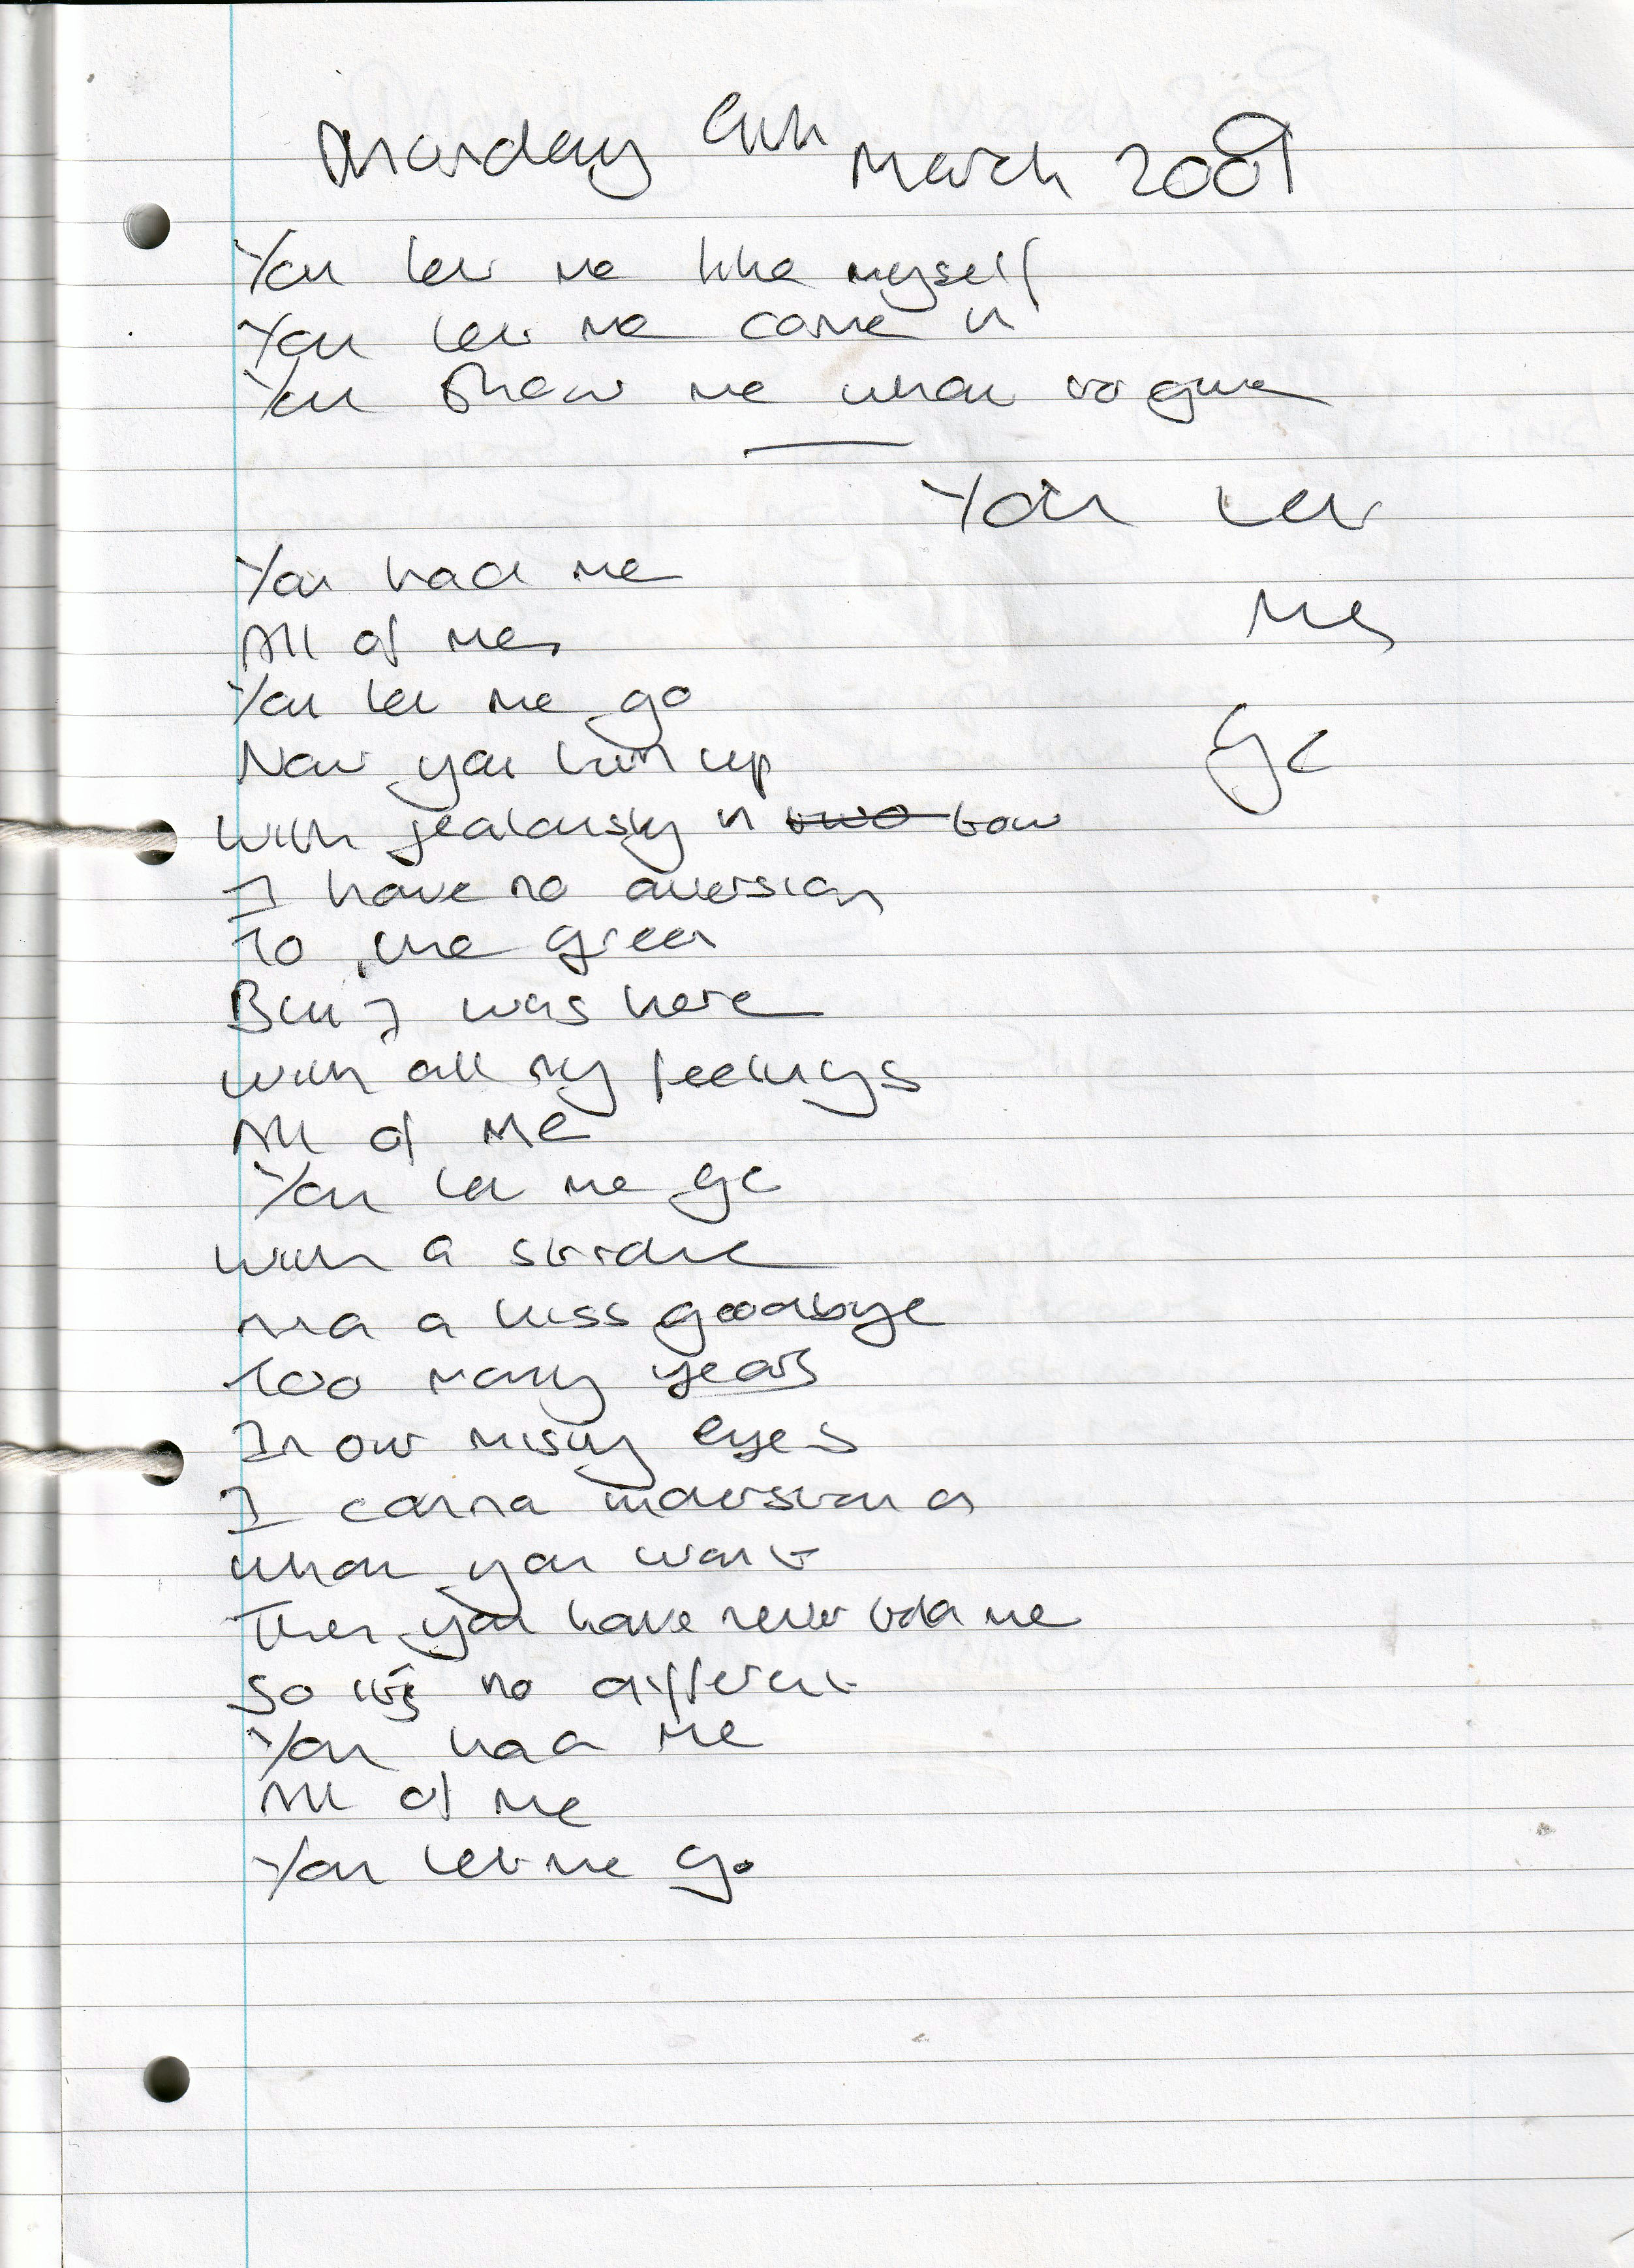 Monday 9th March 2009
You let me like myself
You let me come in
You show me what to give
You let
me
go
You had me
All of me
You let me go
Now you turn up
With jealousy in two tow
I have no aversion
To the green
But I was here
With all my feelings
All of me
You let me go
With a stroke
And a kiss goodbye
Too many years
In our misty eyes
I canna understand
What you want
Then you have never told me
So it's no different
You had me
All of me
You let me go.